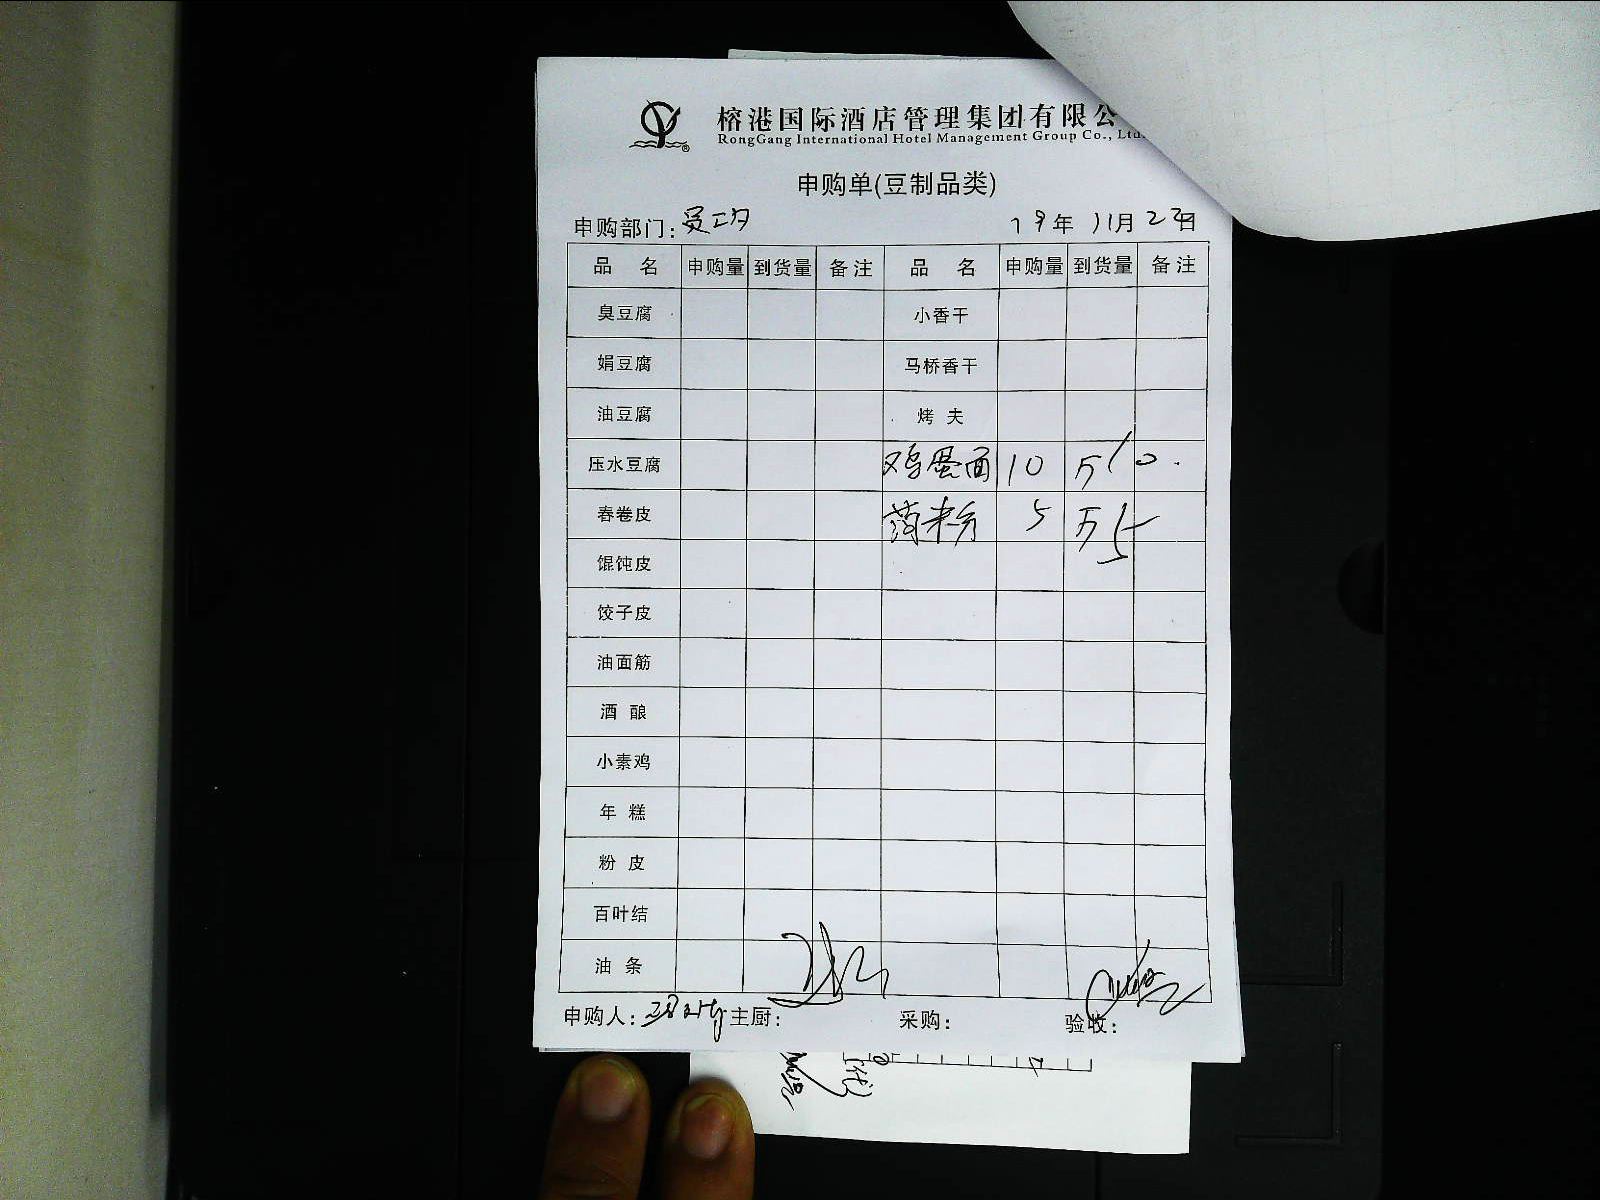 榕港国际酒店管理集团有限公
RongGang International Hotel Management Group Co., Ltd.
申购单(豆制品类)
申购部门: 员工 19年 11月 22日
品 名 申购量 到货量 备注 品 名 申购量 到货量 备注
臭豆腐 小香干
娟豆腐 马桥香干
油豆腐 烤 夫
压水豆腐 鸡蛋面 10 斤 10
春卷皮 5 斤 5
馄饨皮
饺子皮
油面筋
酒 酿
小素鸡
年 糕
粉 皮
百叶结
油 条
申购人: 主厨: 采购: 验收: